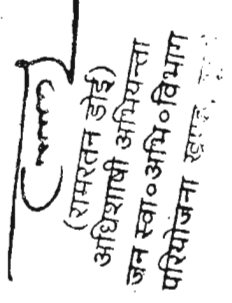 (रामरतन डोई)
अधिशाषी अभियन्ता
जन स्वा०अभि०विभाग
परियोजना खण्ड